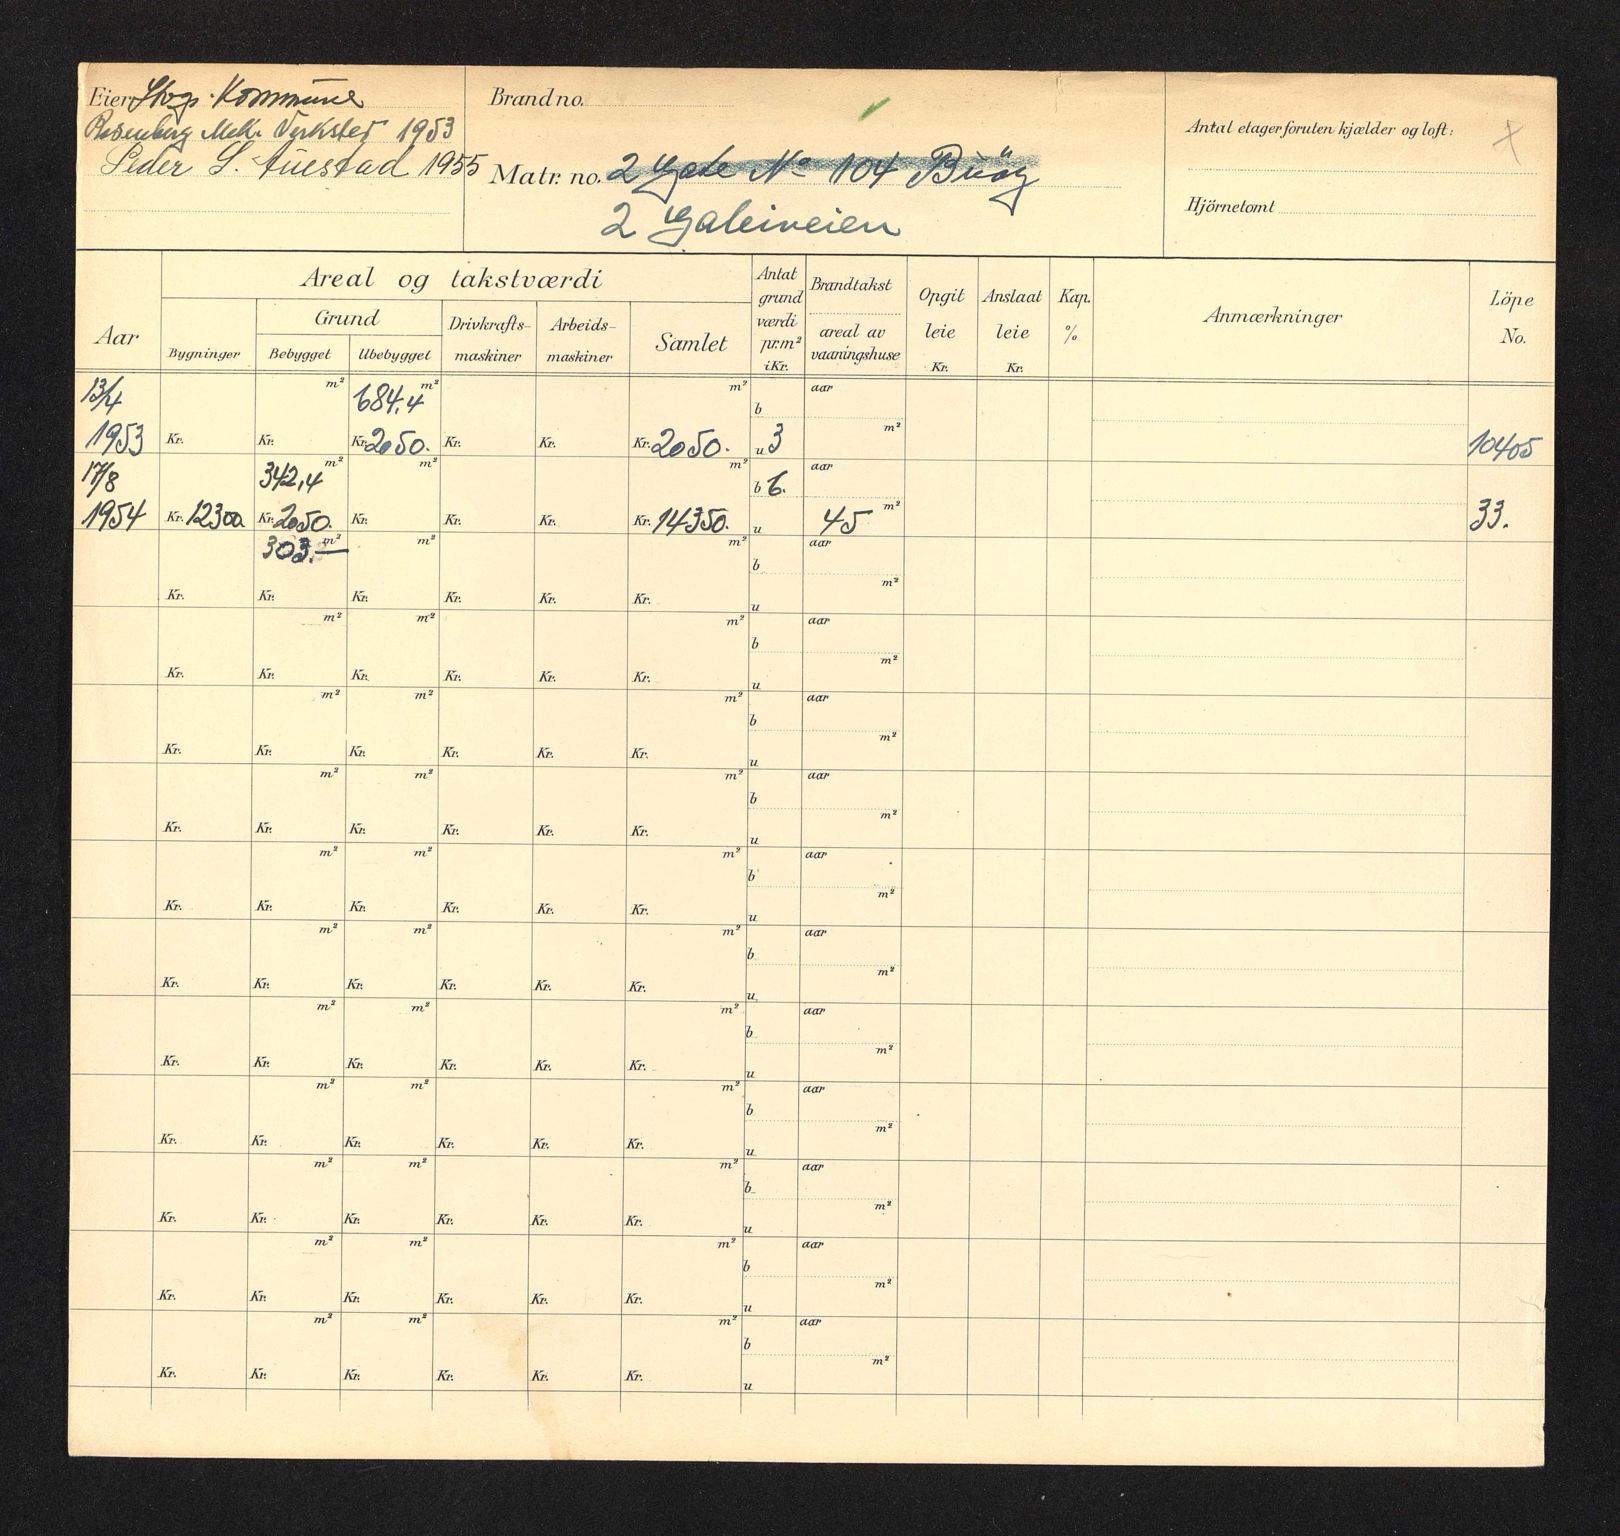 Eier Stvgr. Kommune
Rosenberg Mek. Verksted 1953
Peder S. Auestad 1955
Brand no.
Matr. no. 2 Gate No 104 Buöy
2 Galeiveien
Antal etager foruten kjælder og loft:
Hjörnetomt
Aar
Areal og takstværdi
Grund
Bygninger Bebygget Ubebygget
Drivkrafts-maskiner
Arbeids-maskiner
Samlet
Antat grund værdi pr.m² i Kr.
Brandtakst
areal av vaaningshuse
Opgit leie Kr.
Anslaat leie Kr.
Kap. %
Anmærkninger
Löpe No.
13/4 m² 684,4 m² m² b aar
1953 Kr. Kr. Kr. 2050. Kr. Kr. Kr. 2050. u 3 m² 10405
17/8 342,4 m² m² m² b 6. aar
1954 Kr. 12300. Kr. 2050. Kr. Kr. Kr. Kr. 14350. u 45 m² 33.
303.— m² m² m² b aar
Kr. Kr. Kr. Kr. Kr. Kr. u m²
m² m² m² b aar
Kr. Kr. Kr. Kr. Kr. Kr. u m²
m² m² m² b aar
Kr. Kr. Kr. Kr. Kr. Kr. u m²
m² m² m² b aar
Kr. Kr. Kr. Kr. Kr. Kr. u m²
m² m² m² b aar
Kr. Kr. Kr. Kr. Kr. Kr. u m²
m² m² m² b aar
Kr. Kr. Kr. Kr. Kr. Kr. u m²
m² m² m² b aar
Kr. Kr. Kr. Kr. Kr. Kr. u m²
m² m² m² b aar
Kr. Kr. Kr. Kr. Kr. Kr. u m²
m² m² m² b aar
Kr. Kr. Kr. Kr. Kr. Kr. u m²
m² m² m² b aar
Kr. Kr. Kr. Kr. Kr. Kr. u m²
m² m² m² b aar
Kr. Kr. Kr. Kr. Kr. Kr. u m²